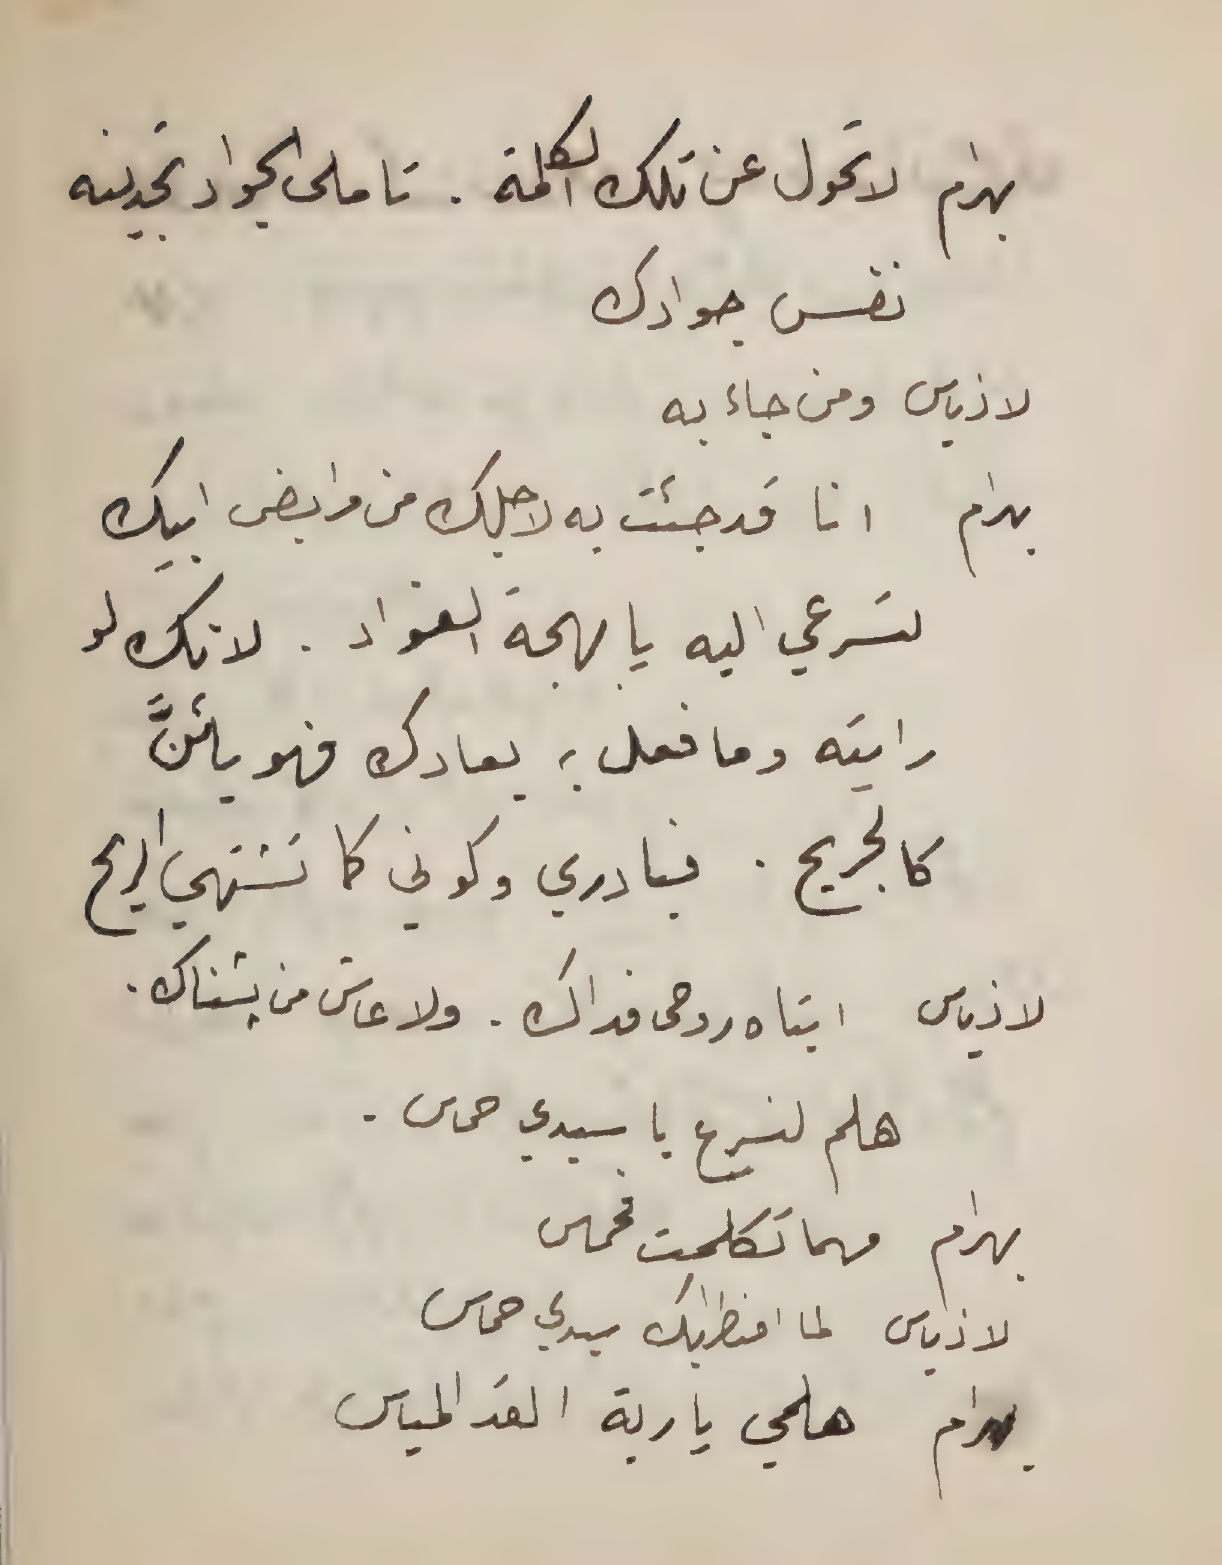 بهرام لا تحول عن تلك الكلمة . تاملى الجواد تجدينه
نفس جوادك
لاذياس ومن جاء به
بهرام انا قد جئت به لاجلك من مرابض ابيك
لتسرعي اليه يا بهجة الفواد . لانك لو
رايته وما فعل به بعادك فهو يائنّ
كالجريح . فبادري وكوني كما تشتهي الريح
لاذياس ابتاه روحى فداك . ولا عاش من يشناك .
هلم لنسرع يا سيدي حماس .
بهرام مهما تكلمت فحماس
لاذياس لما انظر اليك سيدي حماس
بهرام هلمي يا ربة القد المياس